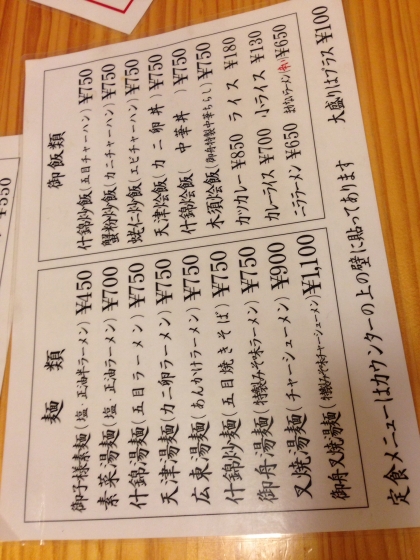 麺類
御子様素麺(塩・正油半ラーメン)¥450
素菜湯麺(塩・正油ラーメン)¥700
什錦湯麺(五目ラーメン)¥750
天津湯麺(カニ卵ラーメン)¥750
広東湯麺(あんかけラーメン)¥750
什錦炒麺(五目焼きそば)¥750
御舟湯麺(特製みそ味ラーメン)¥750
叉焼湯麺(チャーシューメン)¥900
御舟叉焼湯麺(特製みそ味チャーシューメン)¥1,100
御飯類
什錦炒飯(五目チャーハン)¥750
蟹粉炒飯(カニチャーハン)¥750
蛯仁炒飯(エビチャーハン)¥750
天津烩飯(カニ卵丼)¥750
什錦烩飯(中華丼)¥750
木須烩飯(御舟特製中華ちらし)¥750
カツカレー ¥850 ライス ¥180
カレーライス ¥700 小ライス ¥130
ニララーメン ¥650 ¥650
定食メニューはカウンターの上の壁に貼ってあります 大盛りはプラス¥100
¥550